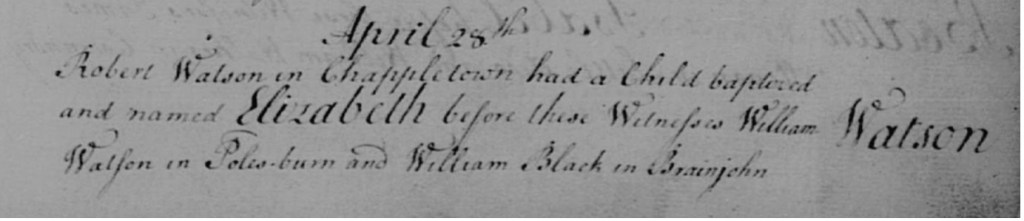 April 28th
Robert Watson in Chappletown had a Child baptized
and named Elizabeth before these Witnesses William
Watson in Poles-burn and William Black in Brainjohn
Watson